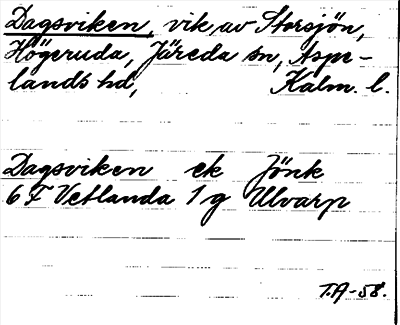 Dagsviken, vik av Storsjön,
Högeruda, Järeda sn, Aspe-
lands hd, Kalm. l.
Dagsviken ek Jönk
6 F Vetlanda 1 g Ulvarp
T.A-58.